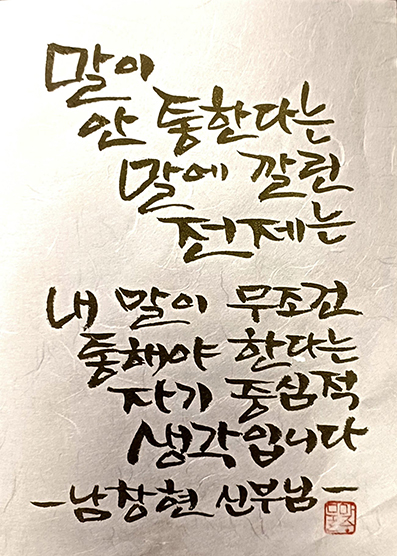 말이
안 통한다는
말에 깔린
전제는
내 말이 무조건
통해야 한다는
자기 중심적
생각입니다
-남창현 신부님-